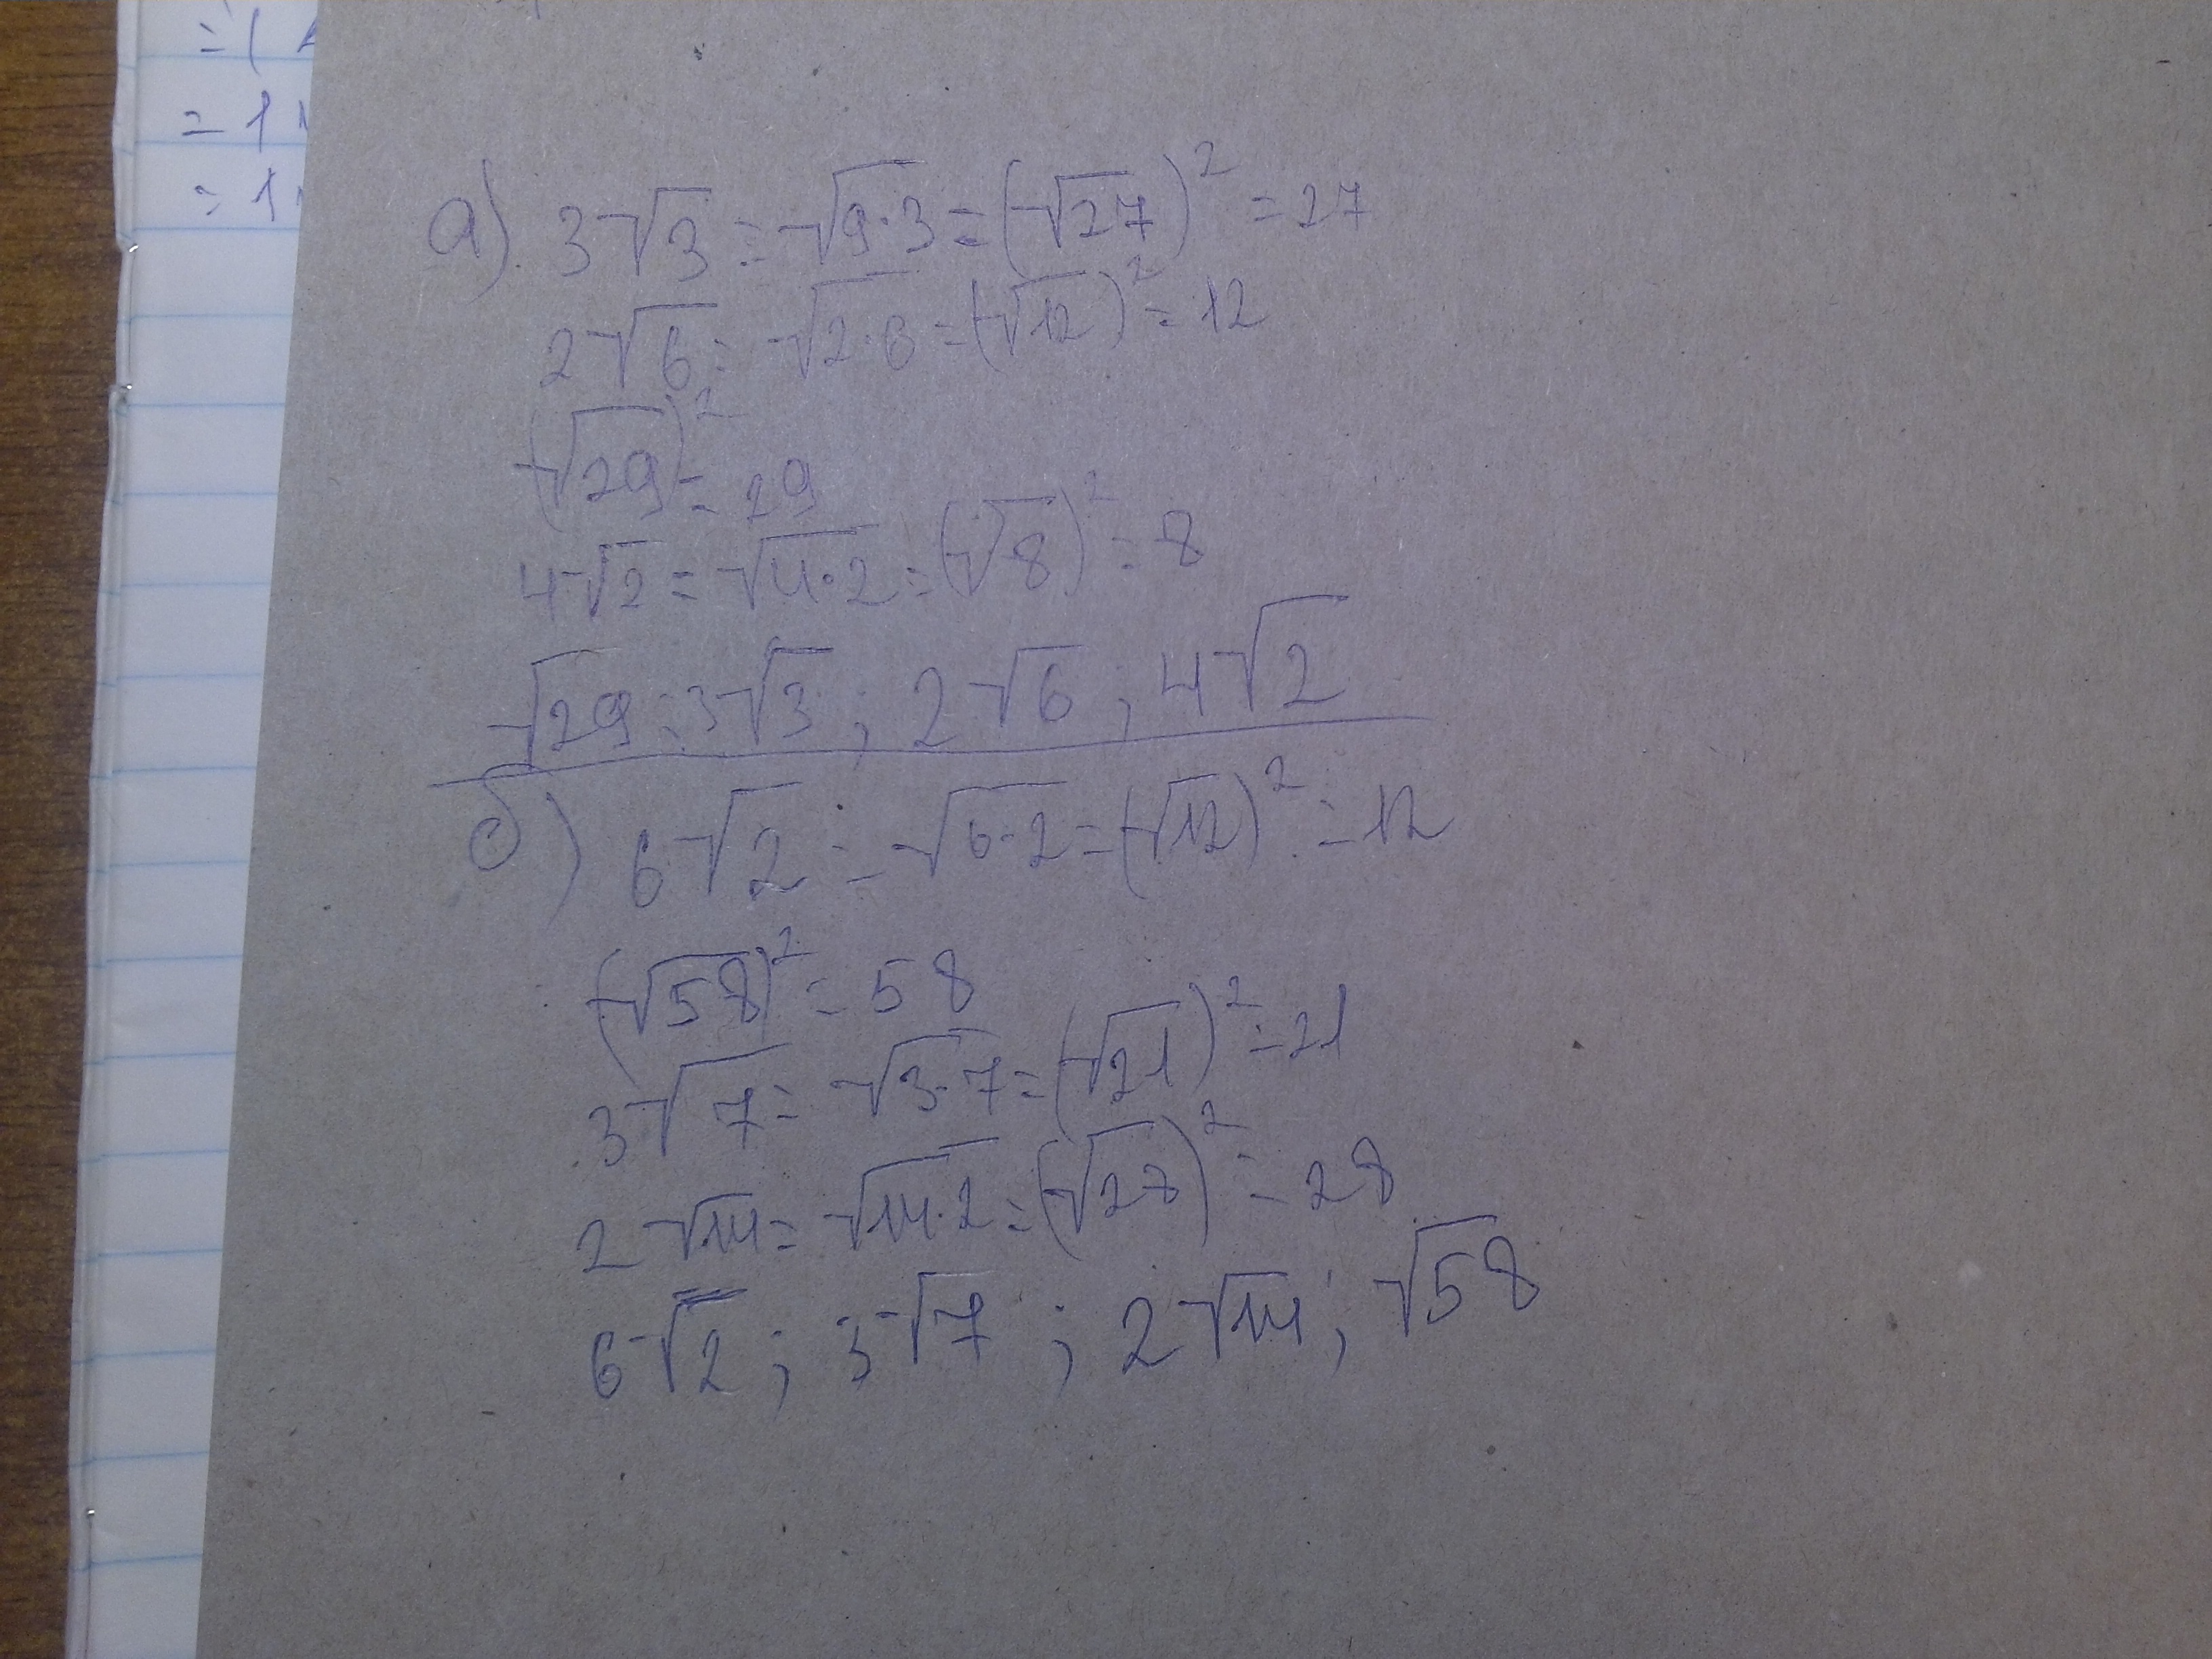 = (
= 1
= 1
а). 3√3 = √9·3 = (√27)² = 27
2√6 = √2·6 = (√12)² = 12
(√29)² = 29
4√2 = √4·2 = (√8)² = 8
√29; 3√3; 2√6; 4√2
б) 6√2 = √6·2 = (√12)² = 12
(√58)² = 58
3√7 = √3·7 = (√21)² = 21
2√14 = √14·2 = (√28)² = 28
6√2; 3√7; 2√14; √58